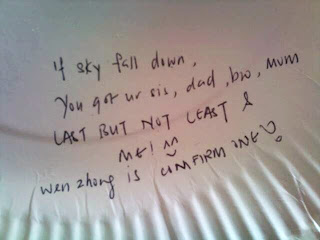 if sky fall down,
You got ur sis, dad, bro, mum
LAST BUT NOT LEAST &
ME! ^^
wen zhong is CONFIRM ONE